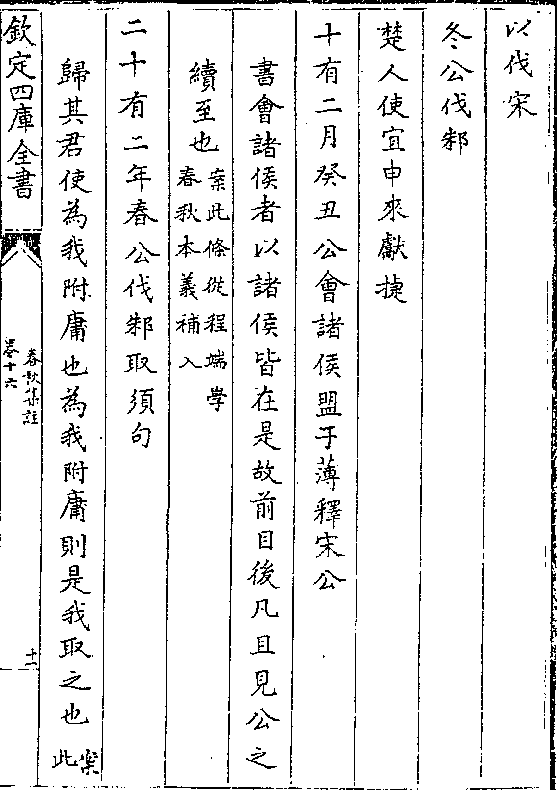 以伐宋
冬公伐邾
楚人使宜申來獻捷
十有二月癸丑公會諸侯盟于薄釋宋公
書會諸侯者以諸侯皆在是故前目後凡且見公之
續至也案此條從程端學
春秋本義補入
二十有二年春公伐邾取須句
歸其君使為我附庸也為我附庸則是我取之也案
此
欽定四庫全書
春秋集註
卷十六
十一